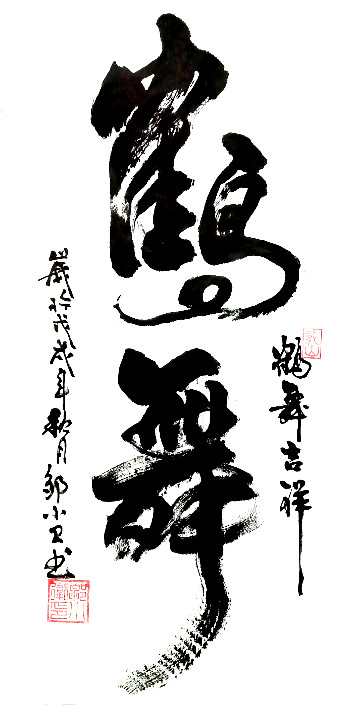 鶴舞
鶴舞吉祥
歲於戊戌年秋月鄒小卫书